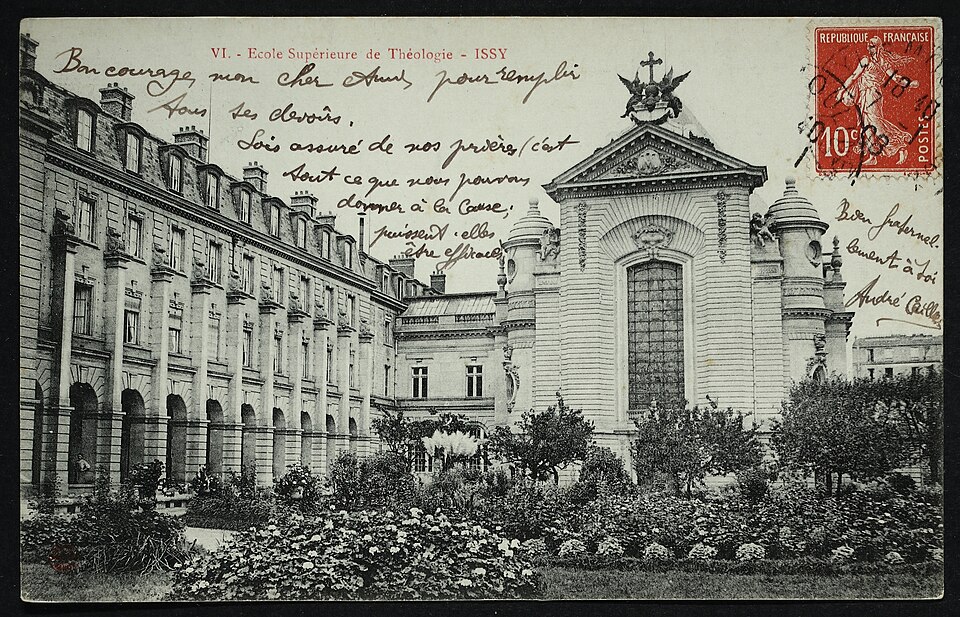 VI. - Ecole Supérieure de Théologie - ISSY
Bon courage, mon cher Ami, pour remplir
tous ses devoirs.
Sois assuré de nos prières, c'est
tout ce que nous pouvons
donner à la Cause,
puissent-elles
être efficaces
Bien fraternel-
lement à toi
André
REPUBLIQUE FRANÇAISE
10c
POSTES